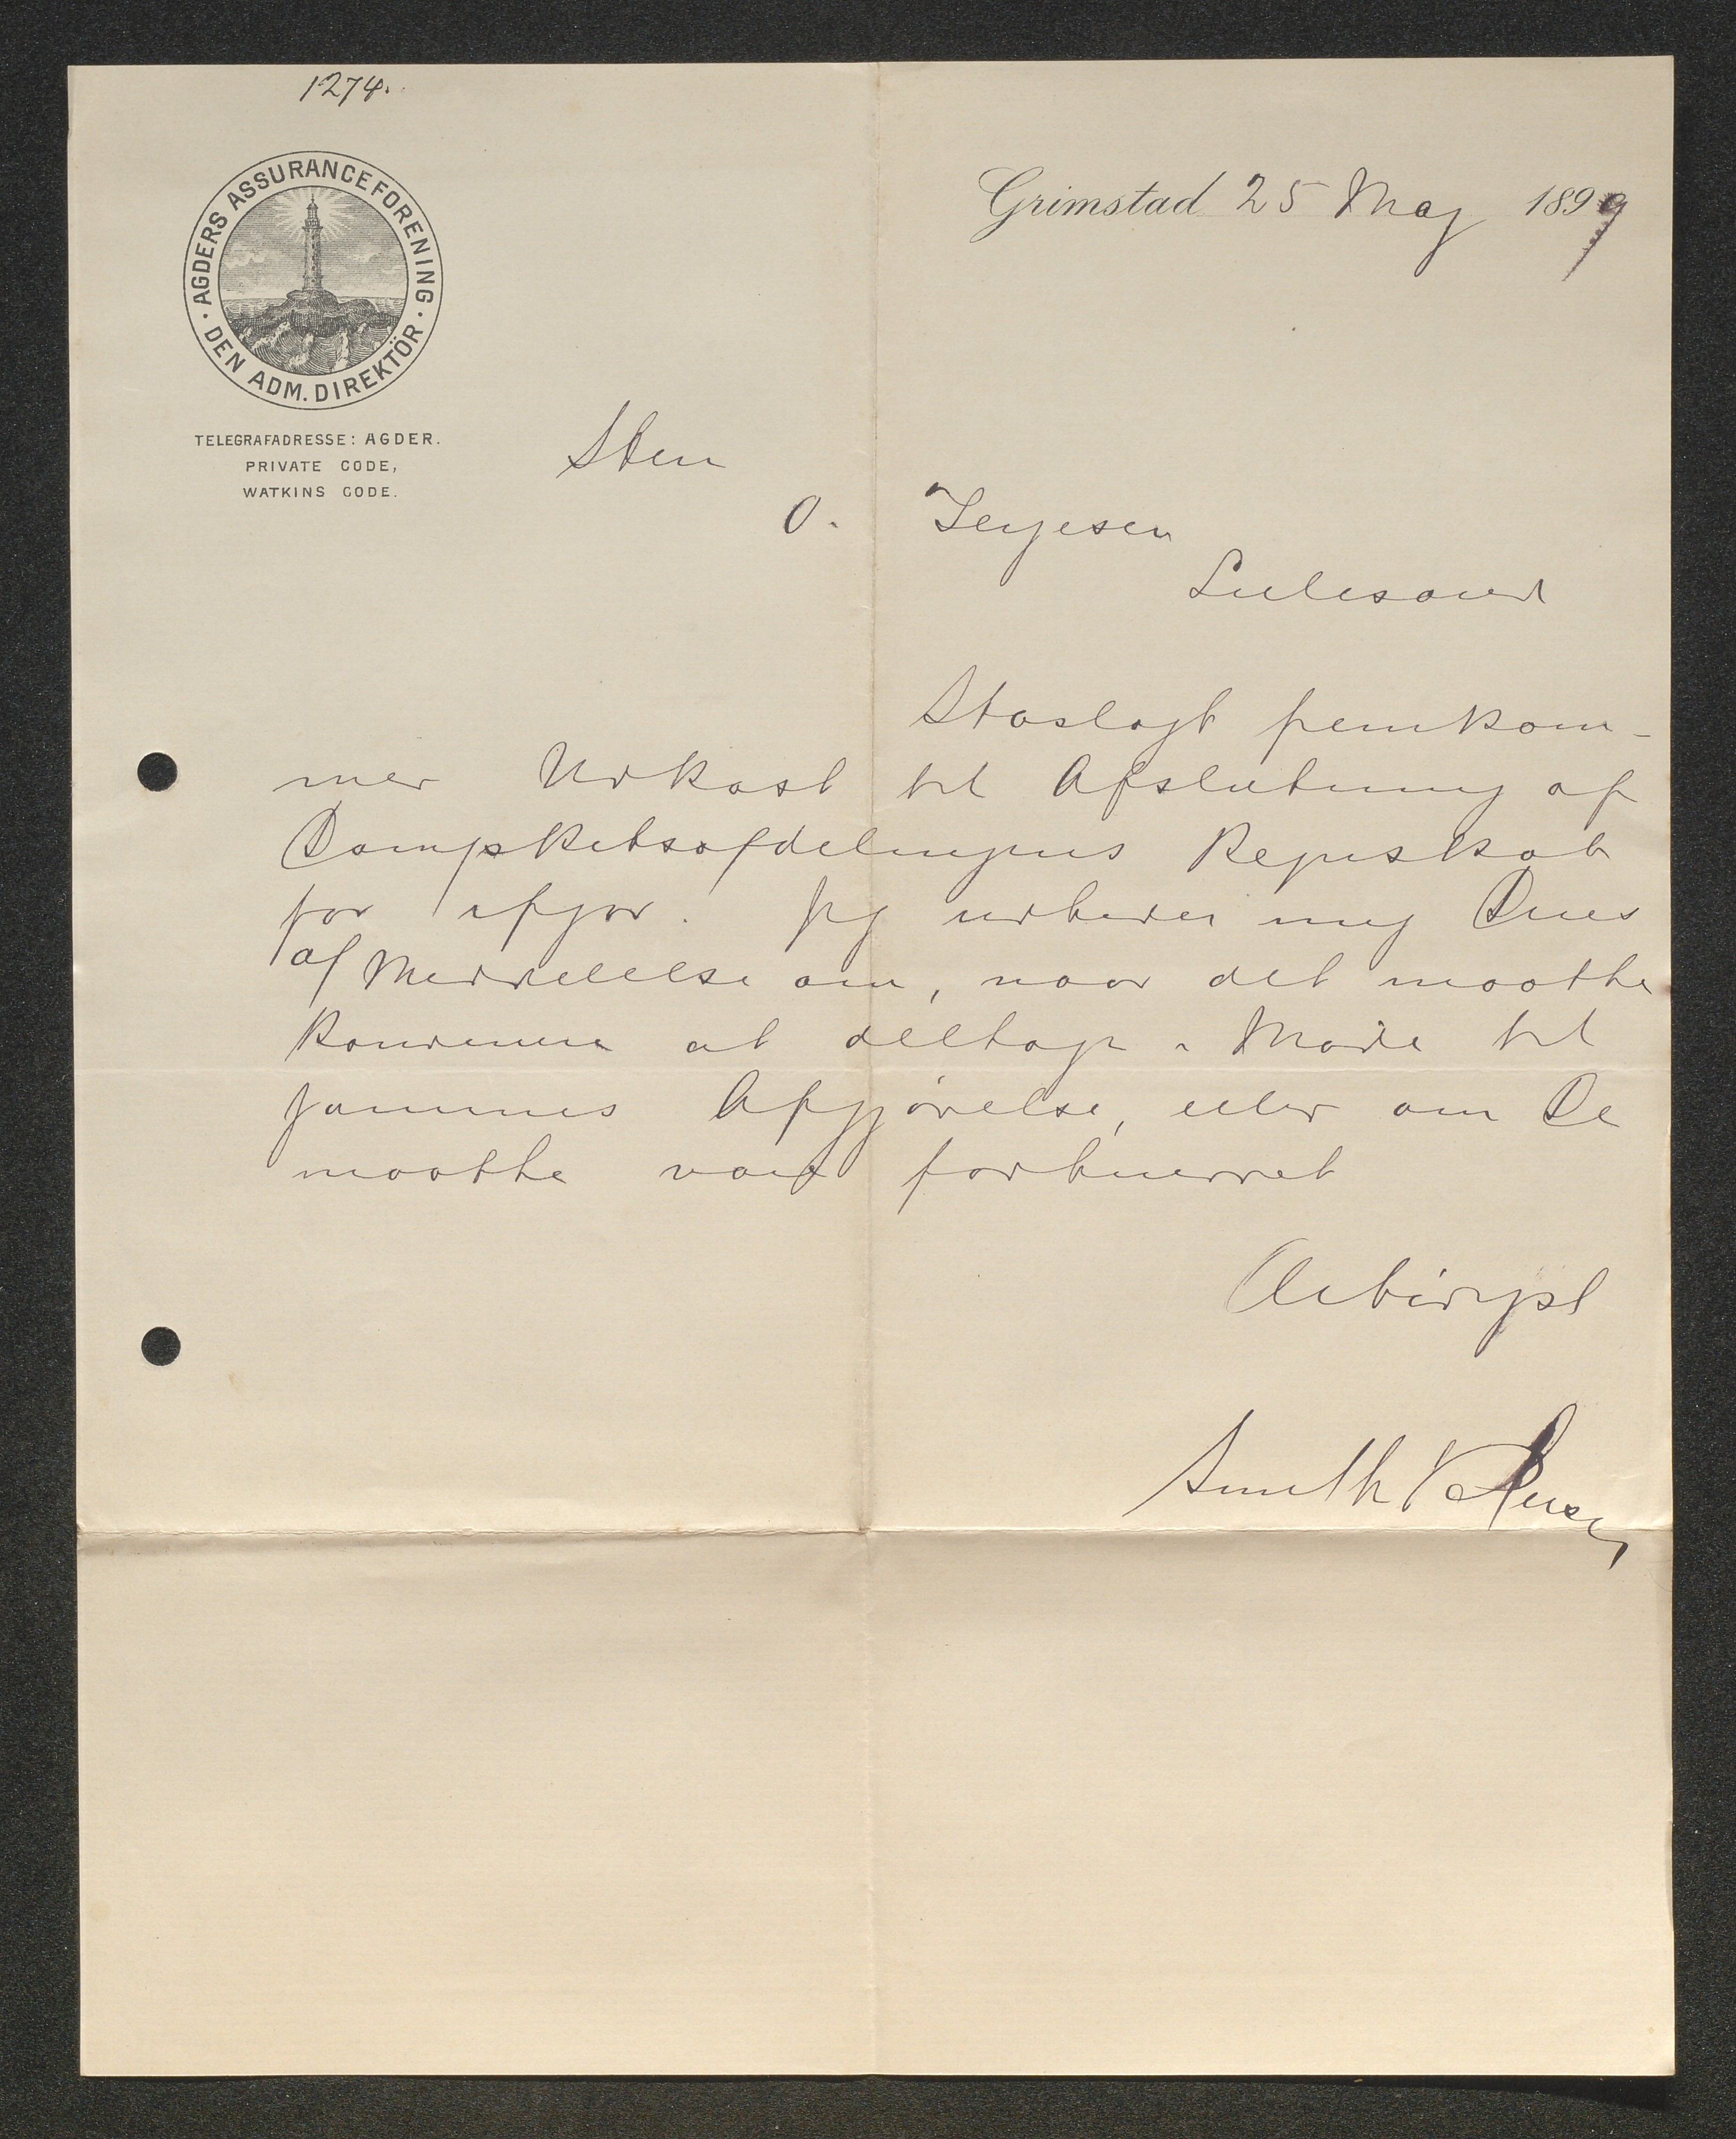 1274.
AGDERS ASSURANCEFORENING
DEN ADM. DIREKTÖR
TELEGRAFADRESSE: AGDER.
PRIVATE CODE,
WATKINS CODE.
Grimstad 25 Maj 1899
Hrr
O. Terjesen
Lillesand
Hoslagt fremkom-
mer Udkast til Afslutning af
Dampskibsafdelingens Regnskab
for ifjor. Jeg udbeder mig Deres
af Meddelelse om, naar det maatte
konvenere at deltage i Møde til
sammes Afgjørelse, eller om De
maatte være forhindret
Ærbødigst
Smith Petersen